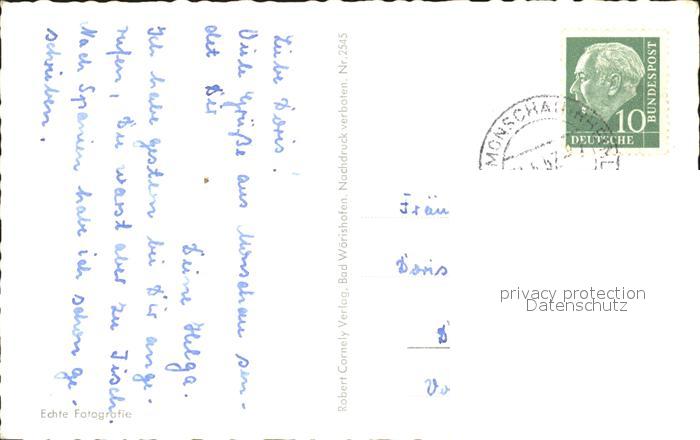 Liebe Doris!
Viele Grüße aus Monschau sen-
det Dir
Deine Helga.
Ich habe gestern bei Dir ange-
rufen, Du warst aber zu Tisch.
Nach Spanien habe ich schon ge-
schrieben.
Echte Fotografie
Robert Cornely Verlag, Bad Wörishofen. Nachdruck verboten. Nr. 2545
10
DEUTSCHE
BUNDESPOST
MONSCHAU
Fräu
Doris
D
Vo
privacy protection
Datenschutz